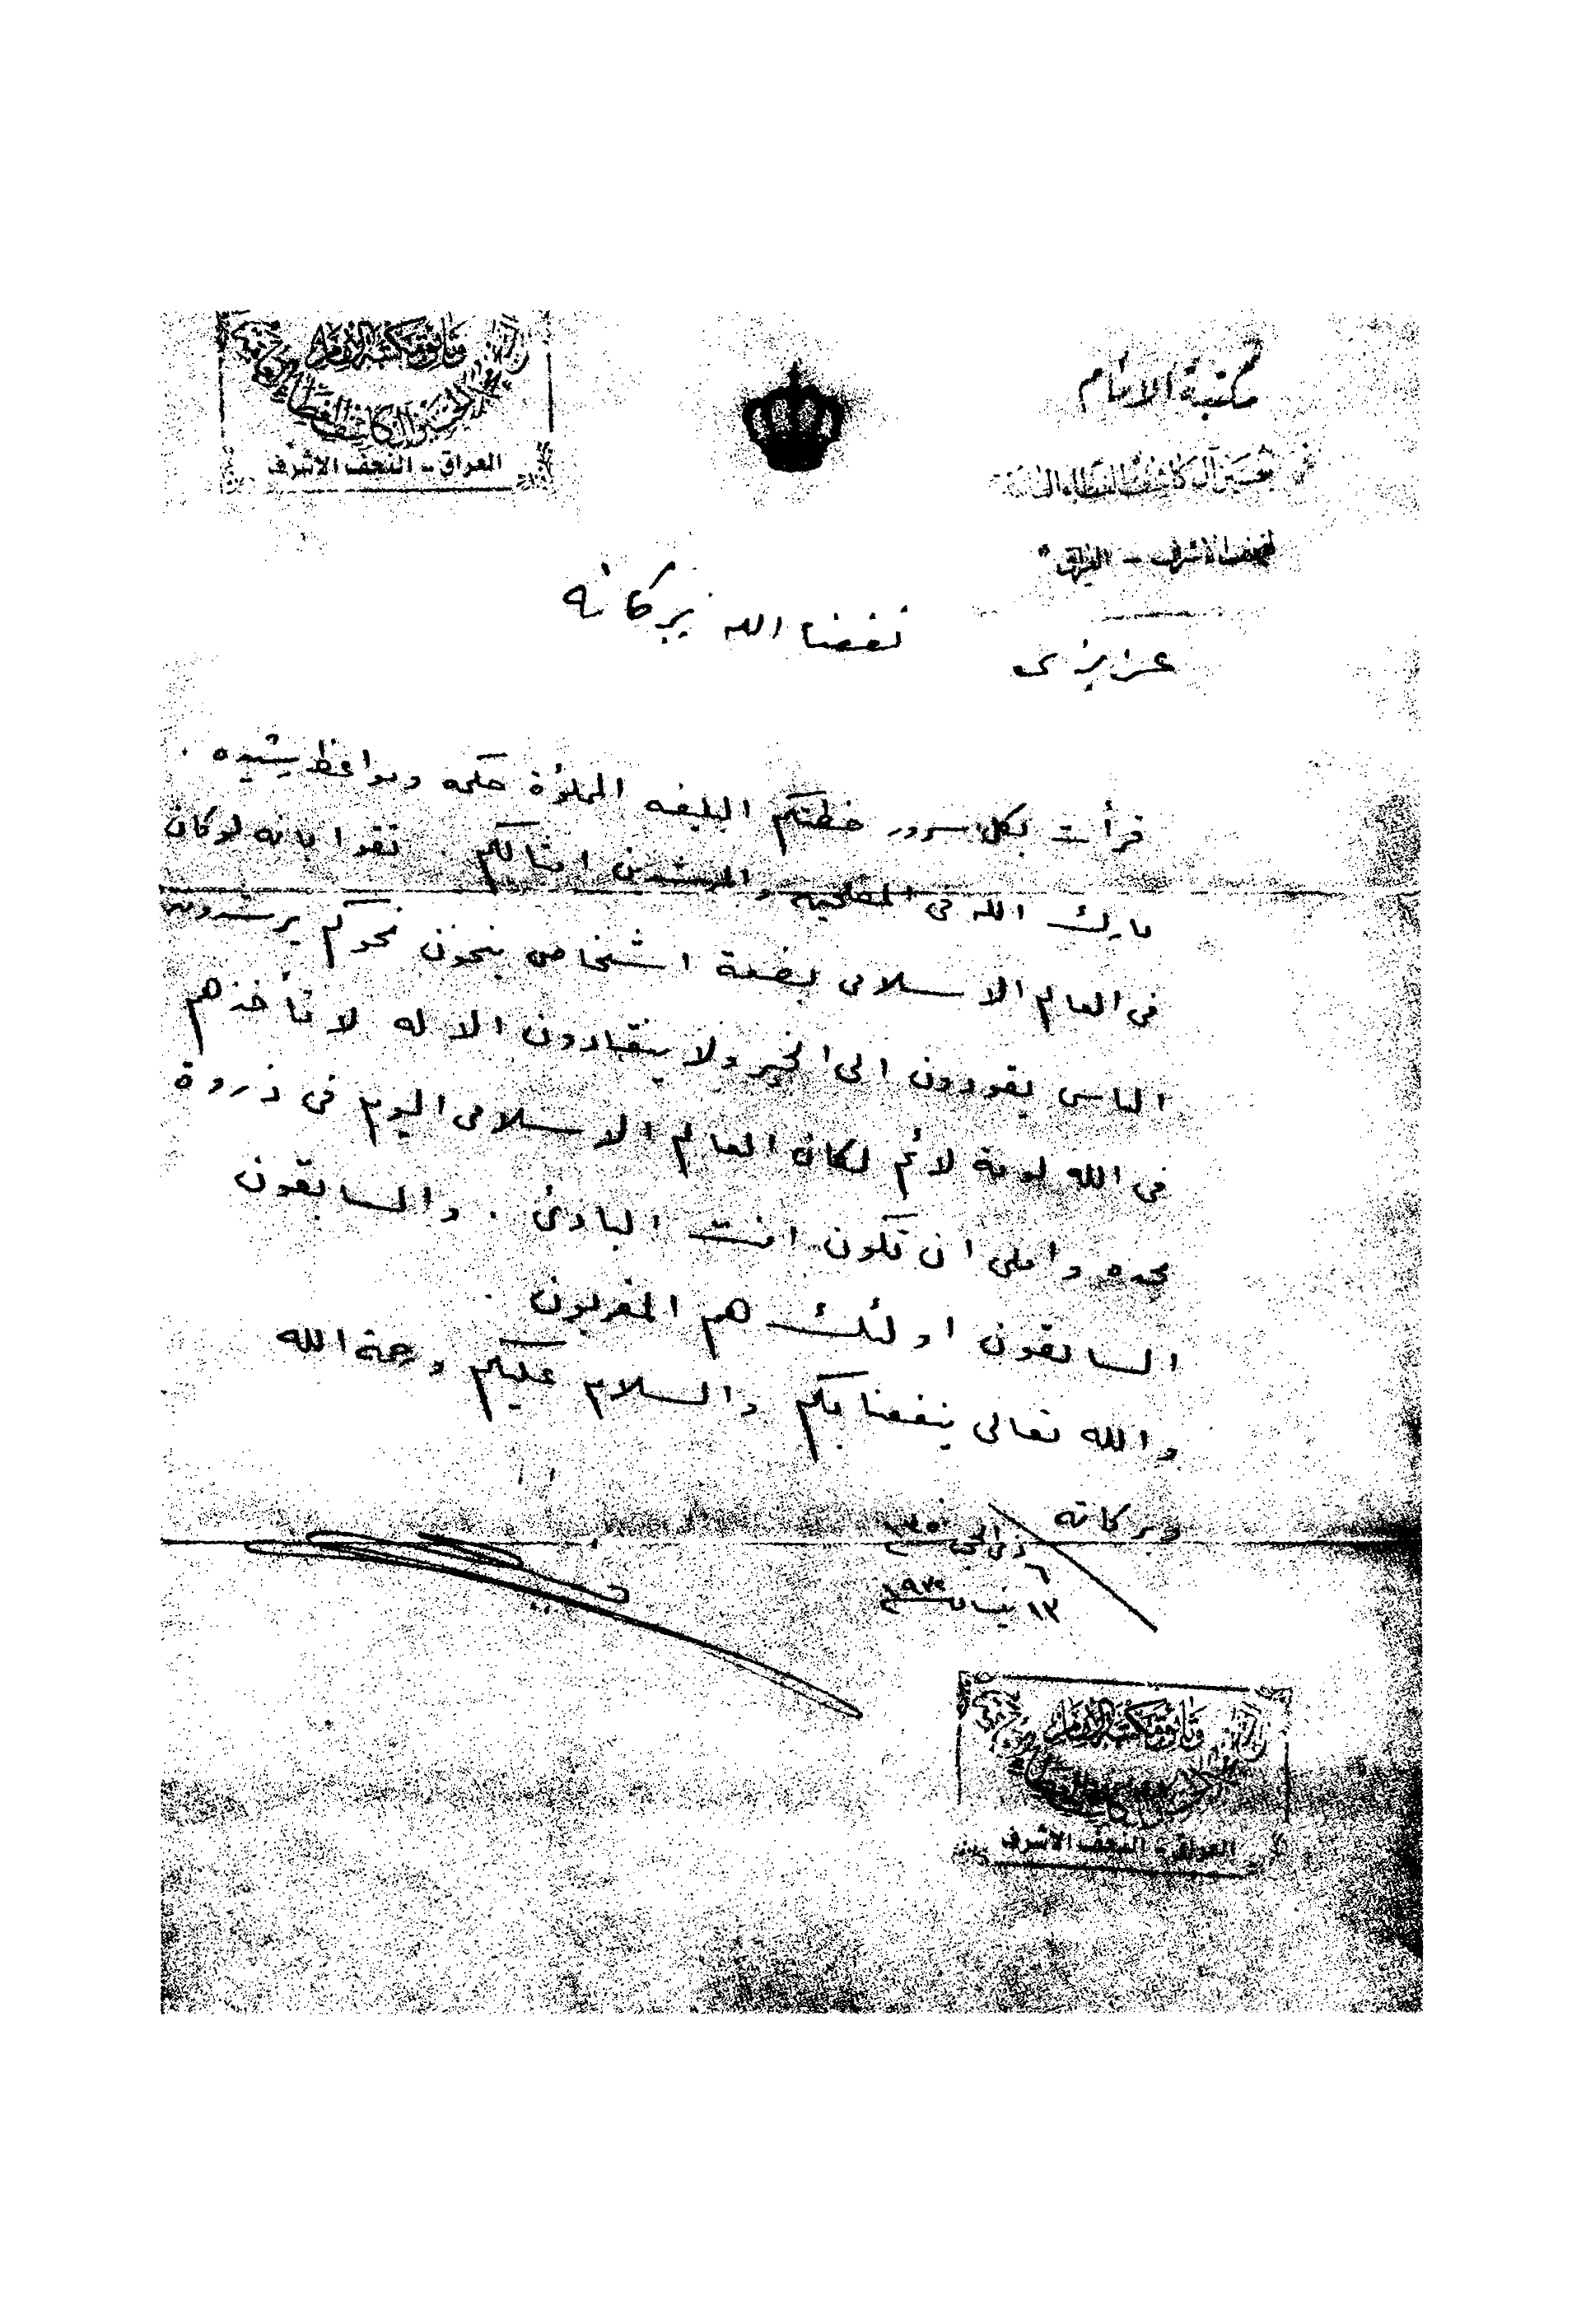 مكتبة الامام
محمد حسين آل كاشف الغطاء العامة
النجف الاشرف - العراق
وثائق مكتبة الامام
محمد الحسين آل كاشف الغطاء العامة
العراق - النجف الاشرف
عزيزى نفعنا الله ببركاته
قرأت بكل سرور خطبتكم البليغه المملؤة حكمه ومواعظ رشيده .
بارك الله فى المصلحين والمرشدين امثالكم . ثقوا بانه لو كان
فى العالم الاسلامى بضعة اشخاص ينحون نحوكم يرشدون
الناس يقودون الى الخير ولا ينقادون الا له لا تأخذهم
فى الله لومة لائم لكان العالم الاسلامى اليوم فى ذروة
مجده واملى ان تكون انت البادئ . والسابقون
السابقون اولئك هم المقربون .
والله تعالى ينفعنا بكم والسلام عليكم ورحمة الله
وبركاته
٦ ذى الحجه ١٣٥٠
١٣ نيسان
وثائق مكتبة الامام
محمد الحسين آل كاشف الغطاء العامة
العراق - النجف الاشرف